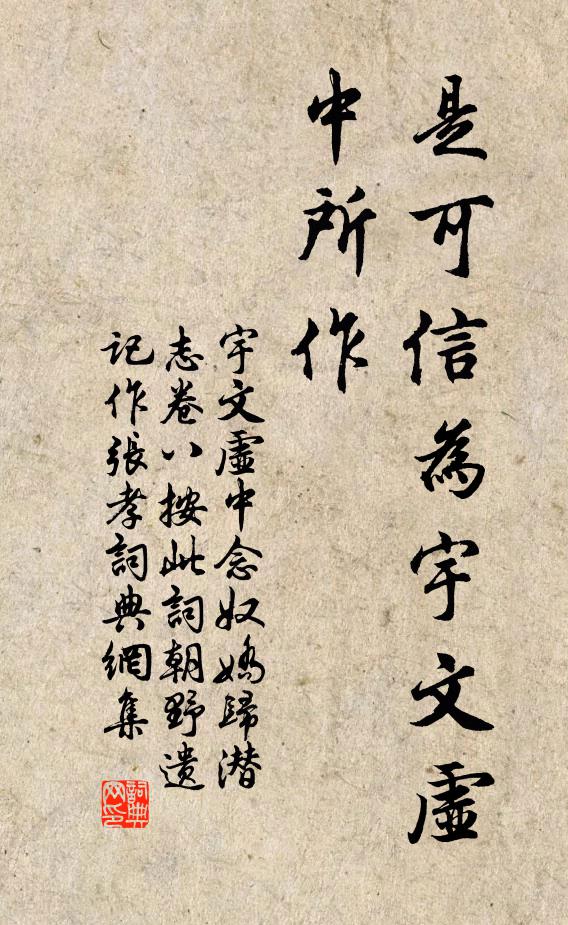 是可信為宇文虛
中所作
宇文虛中念奴嬌歸潛
志卷八按此詞朝野遺
記作張孝詞典網集
詞典
网印